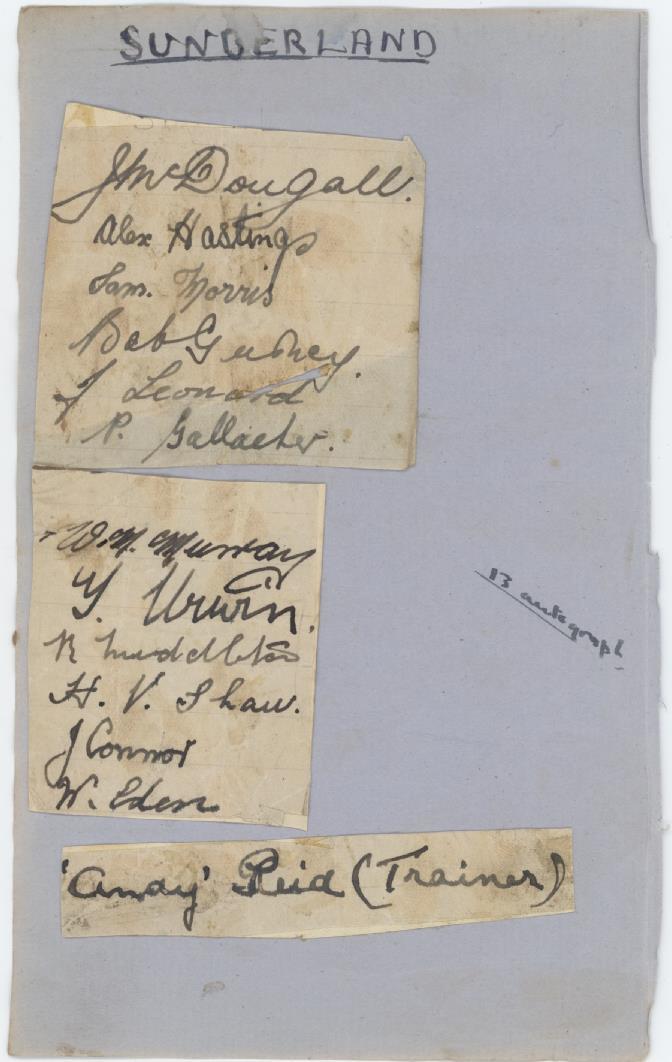 SUNDERLAND
J McDougall.
Alex Hastings
Sam. Morris
Bob Gurney.
J Leonard
P. Gallacher.
W. M. Murray
T. Urwin.
R Middleton
H. V. Shaw.
J Connor
W. Eden
13 autograph
'Andy' Reid (Trainer)